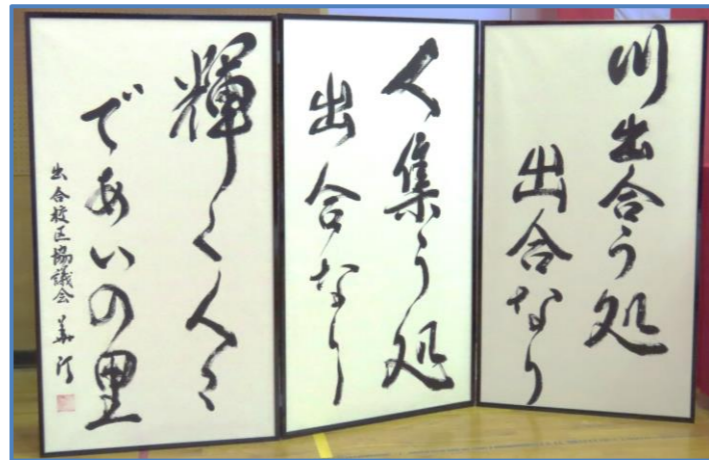 川出合う処
出合なり
人集う処
出合なり
輝く人々
であいの里
出合校区協議会